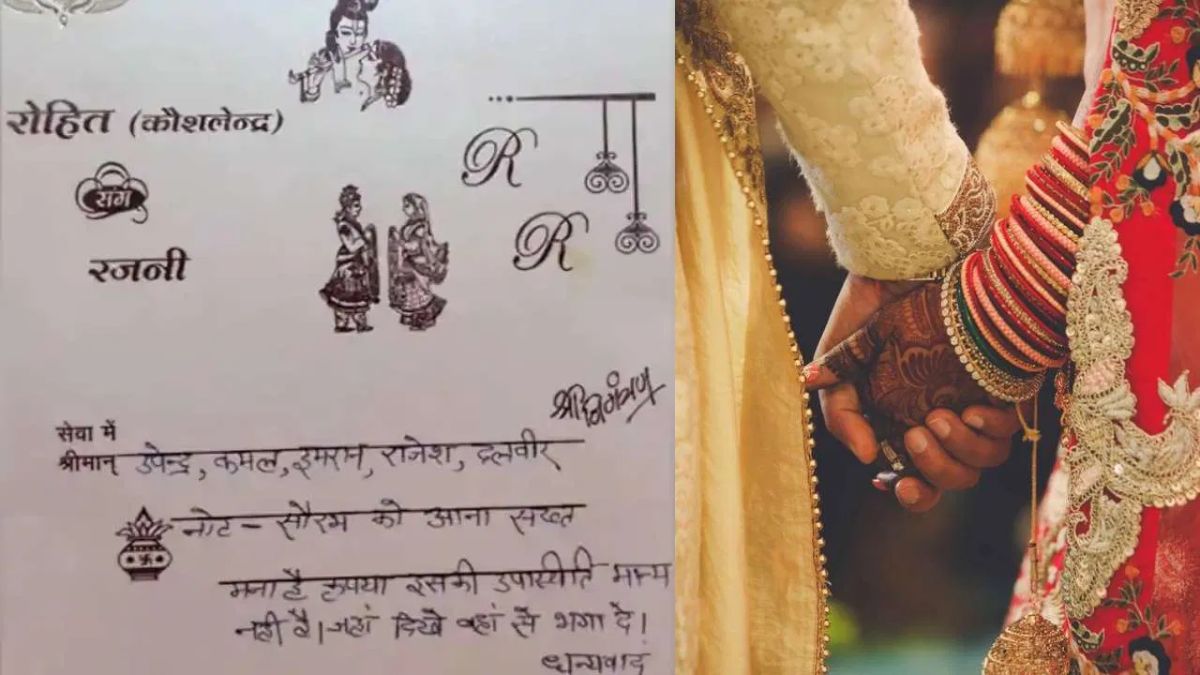 रोहित (कौशलेन्द्र)
R
संग
R
रजनी
श्री निमंत्रण
सेवा में
श्रीमान् उपेन्द्र, कमल, इमरान, राजेश, दलवीर
नोट - सौरभ को आना सख्त
मना है कृपया इसकी उपास्थीति मान्य
नहीं है। जहां दिखे वहां से भगा दे।
धन्यवाद